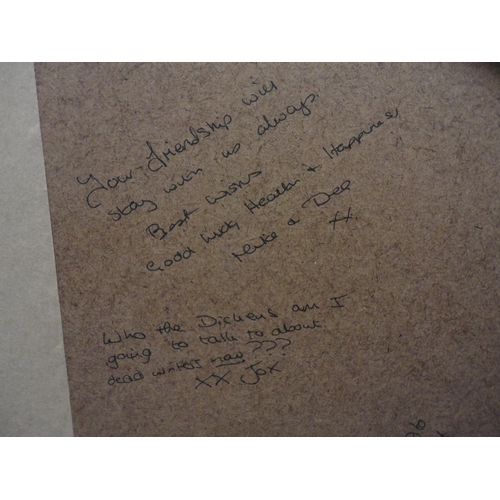 Your friendship will
stay with us always
Best wishes
Good luck, Health & Happiness
Mike & Dee
xx.
Who the Dickens am I
going to talk to about
dead writers now???
XX Jax